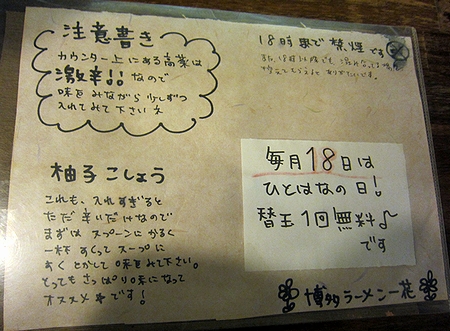 注意書き
カウンター上にある高菜は
激辛!!なので
味をみながら少しずつ
入れてみて下さいネ
18時まで禁煙です
柚子こしょう
これも、入れすぎると
ただ辛いだけなので
まずはスプーンにかるく
一杯すくってスープに
あくとかして味をみて下さい。
とってもさっぱり味になって
オススメです!
毎月18日は
ひとはなの日!
替玉1回無料♪
です
博多ラーメン一花